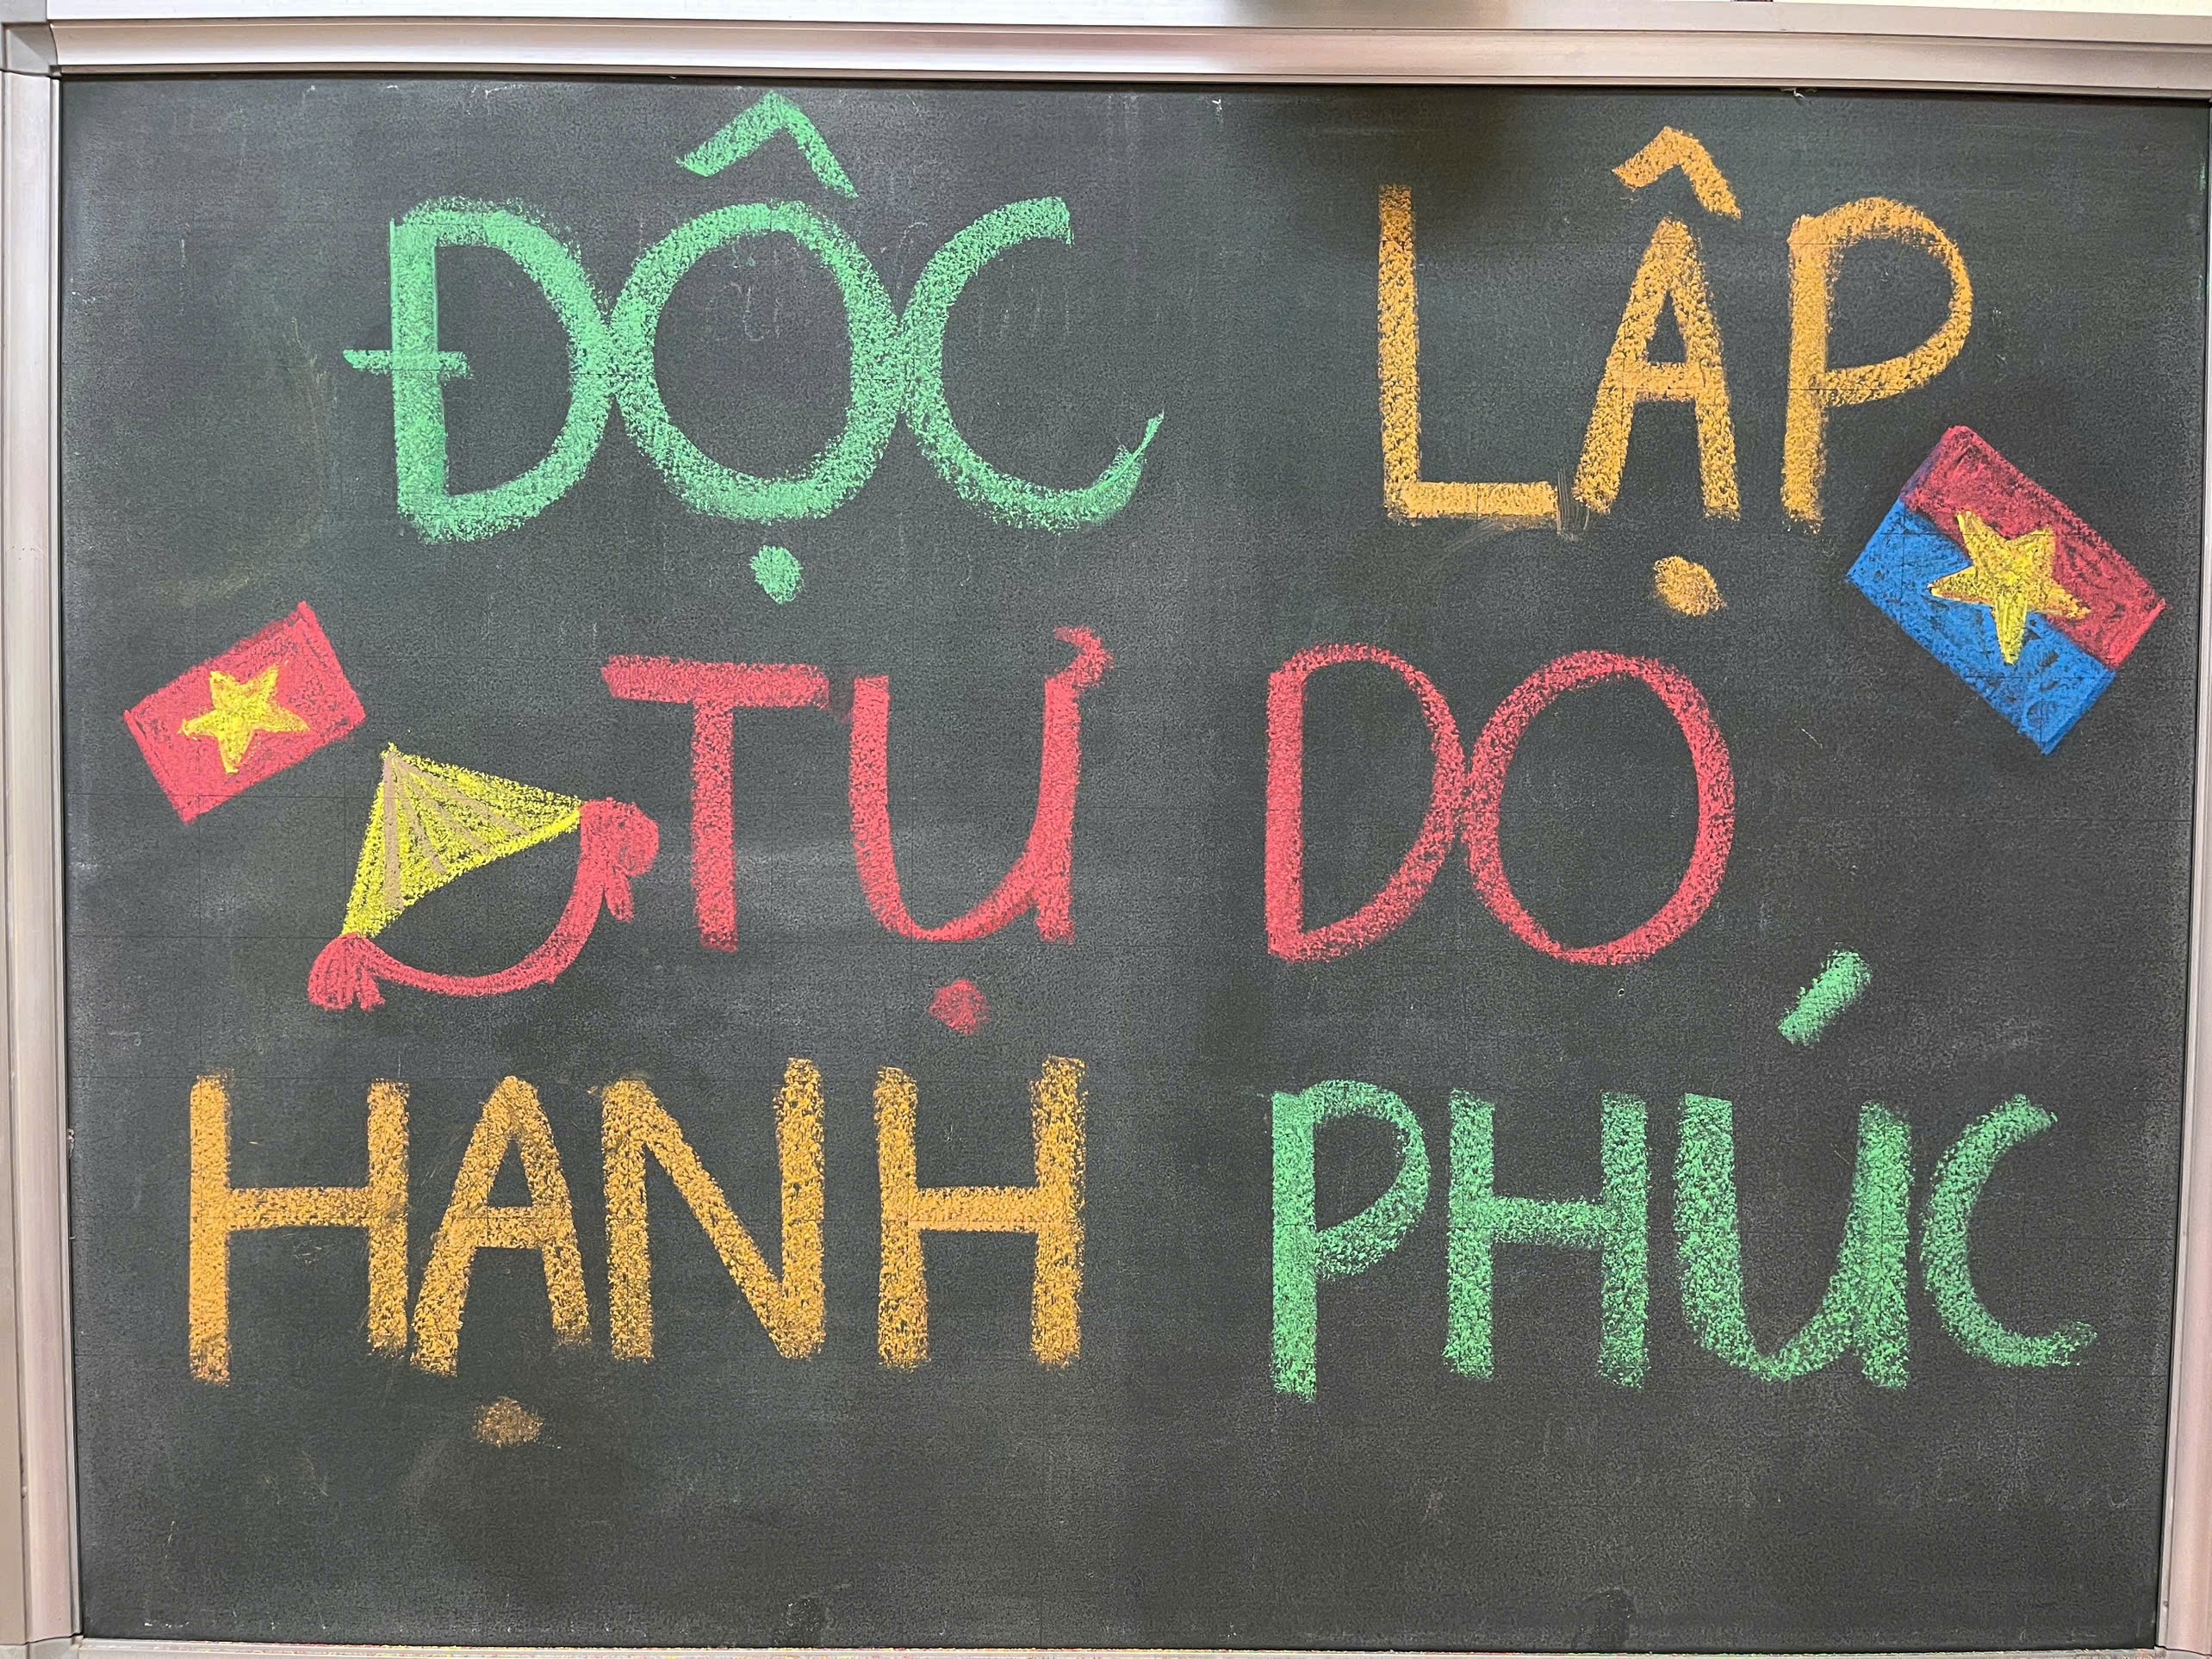 ĐỘC LẬP
TỰ DO
HẠNH PHÚC